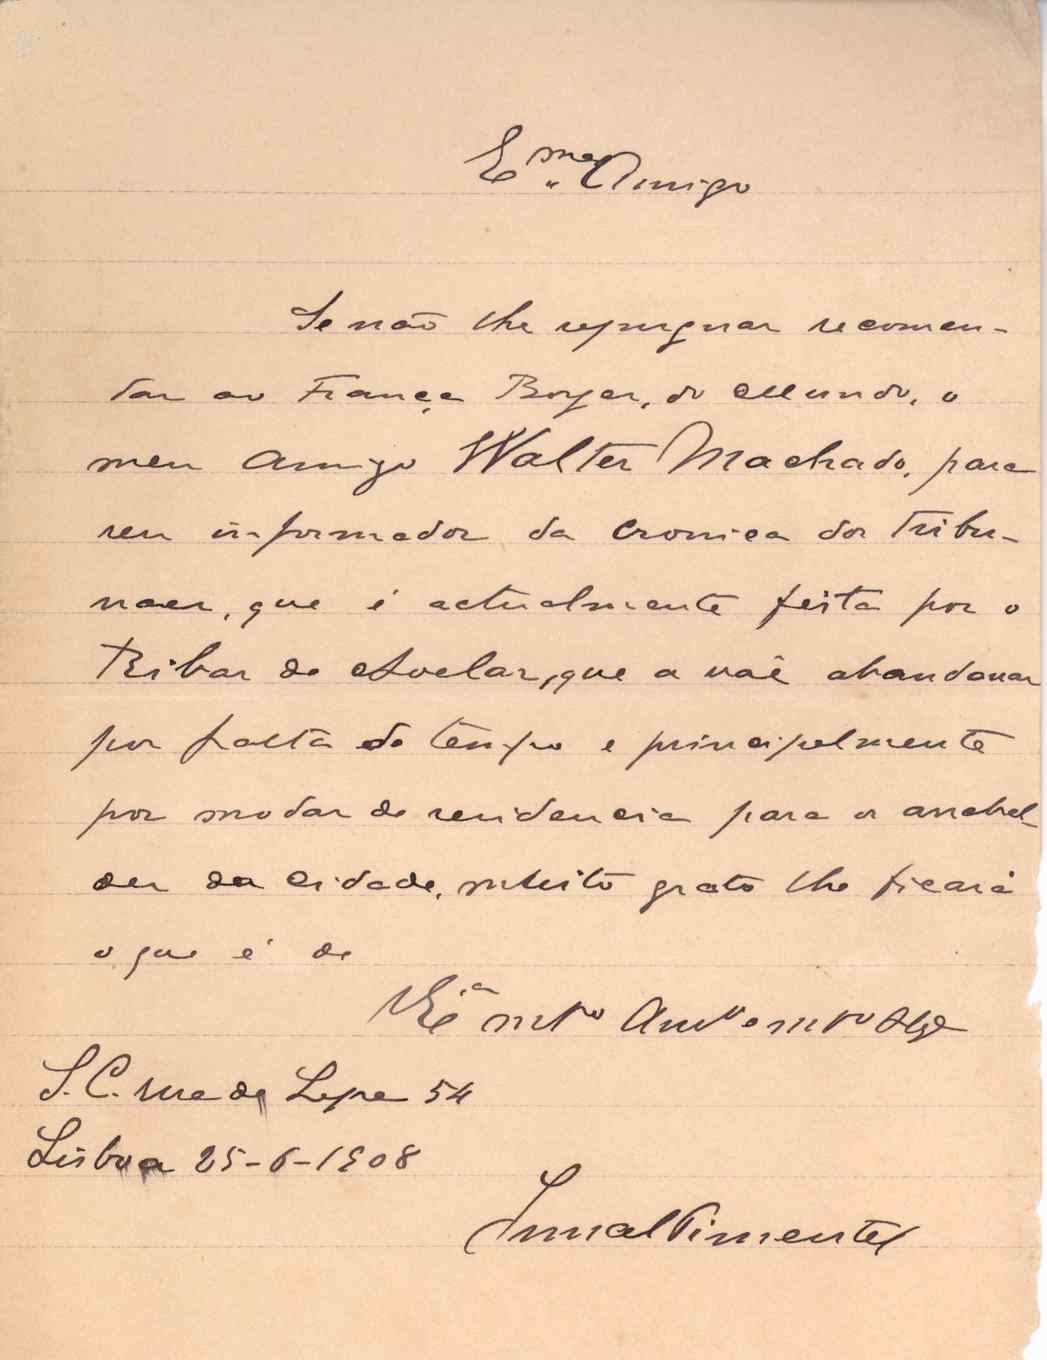 E.mo Amigo
Se não lhe repugnar recomen-
dar ao França Borges, do Mundo, o
meu amigo Walter Machado, para
seu informador da cronica dos Tribu-
naes, que é actualmente feita por o
Ribar de Avelar, que a vae abandonar
por falta de tempo e principalmente
por mudar de residencia para os arrebal-
des da cidade, muito grato lhe ficará
o que é de
V. Ex.ia m.to Am.o e m.to Obg.
S. C. rua da Lapa 54
Lisboa 25-6-1908
Pimentel